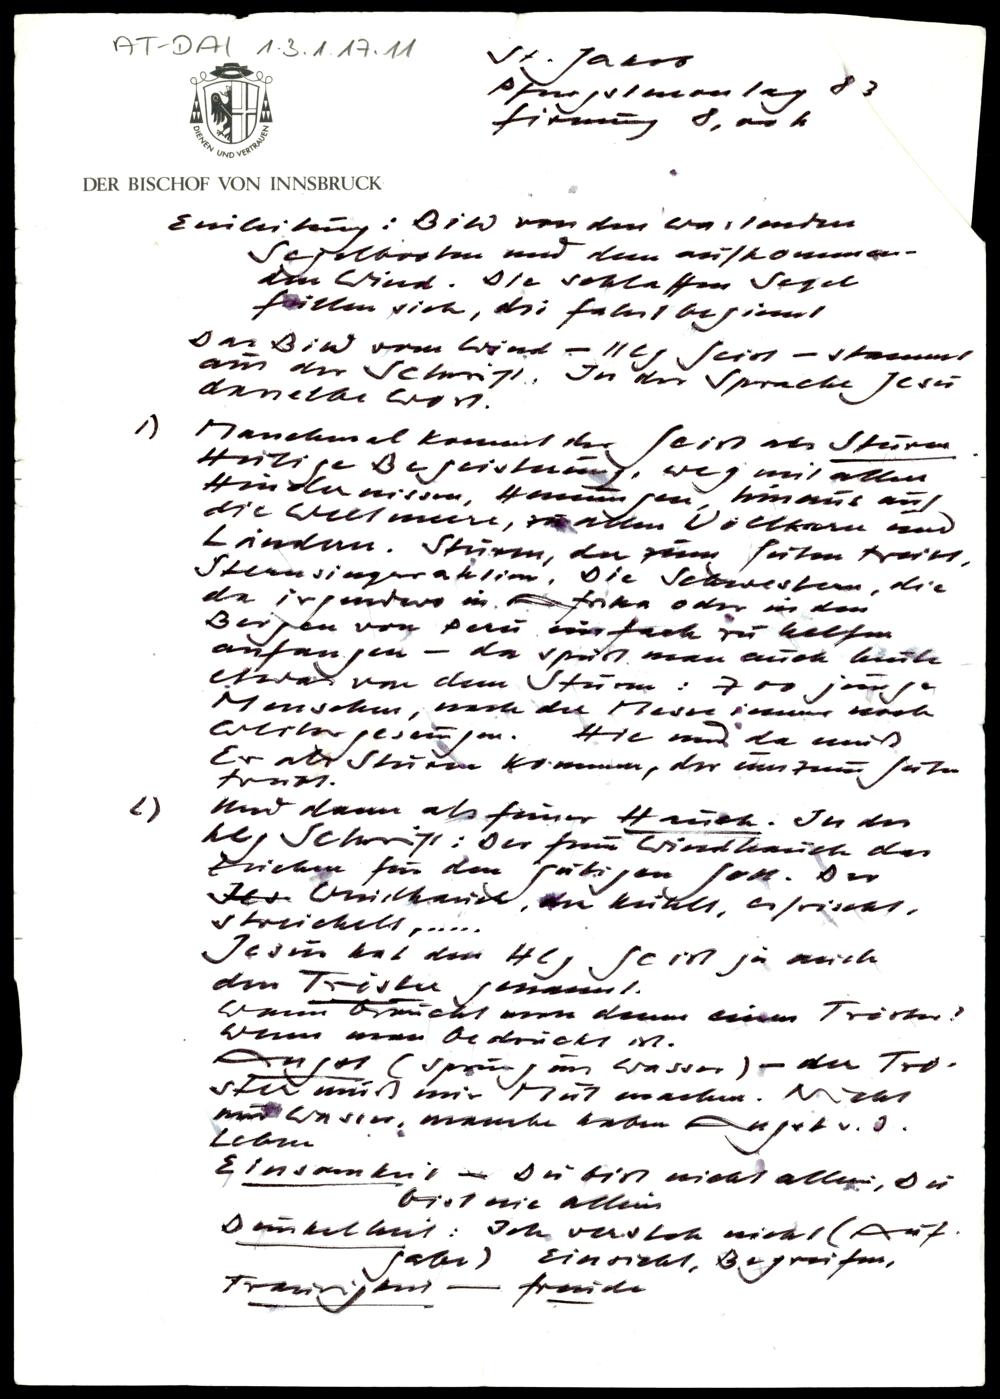 AT-DAI 1.3.1.17.11
St. Jakob
Pfingstmontag 83
Firmung 8,00 h
DIENEN UND VERTRAUEN
DER BISCHOF VON INNSBRUCK
Einleitung: Bild von den wartenden
Segelbooten und dem aufkommen-
den Wind. Die schlaffen Segel
füllen sich, die Fahrt beginnt
Das Bild vom Wind – Hlg Geist – stammt
aus der Schrift. In der Sprache Jesu
dasselbe Wort.
1) Manchmal kommt der Geist als Sturm.
Heilige Begeisterung, weg mit allen
Hindernissen, Hemmungen, hinaus auf
die Weltmeere, zu allen Völkern und
Ländern. Sturm, der zum Guten treibt,
Sternsingeraktion. Die Schwestern, die
da irgendwo in Afrika oder in den
Bergen von Peru einfach zu helfen
anfangen – da spürt man auch heute
etwas von dem Sturm: 700 junge
Menschen, nach der Messe immer noch
weitergesungen. Hie und da muß
Er als Sturm kommen, der uns zum Guten
treibt.
2) Und dann als feiner Hauch. In der
hlg Schrift: Der feine Windhauch das
Zeichen für den gütigen Gott. Der
Windhauch, der kühlt, erfrischt,
streichelt,.....
Jesus hat den Hlg Geist ja auch
den Tröster genannt.
Wann braucht man denn einen Tröster?
Wenn man bedrückt ist.
Angst (Sprung ins Wasser) – der Trö-
ster muß mir Mut machen. Nicht
nur Wasser, manche haben Angst v. d.
Leben
Einsamkeit – Du bist nicht allein, Du
bist nie allein
Dunkelheit: Ich versteh nicht (Auf-
gabe) Einsicht, Begreifen,
Traurigkeit — Freude